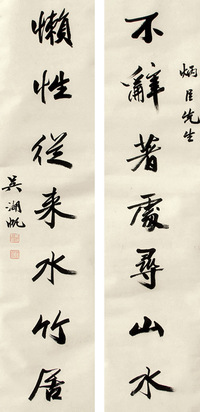 炳臣先生
不辭著處尋山水
懶性從来水竹居
吳湖帆